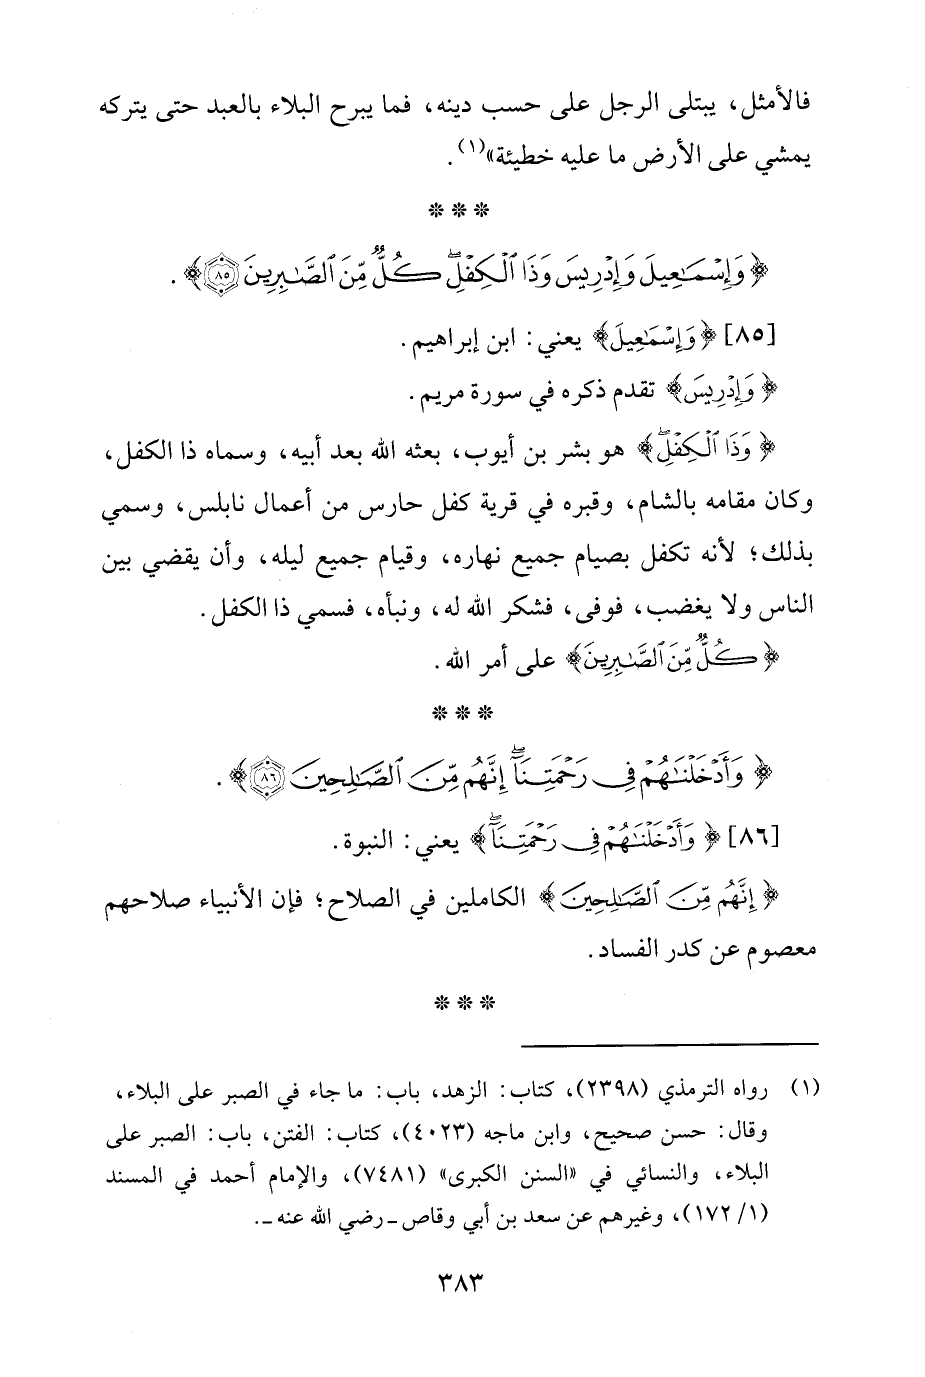 فالأمثل، يبتلى الرجل على حسب دينه، فما يبرح البلاء بالعبد حتى يتركه
يمشي على الأرض ما عليه خطيئة»(١).
* * *
﴿وَإِسْمَٰعِيلَ وَإِدْرِيسَ وَذَا ٱلْكِفْلِۖ كُلٌّ مِّنَ ٱلصَّٰبِرِينَ ٨٥﴾.
[٨٥] ﴿وَإِسْمَٰعِيلَ﴾ يعني: ابن إبراهيم.
﴿وَإِدْرِيسَ﴾ تقدم ذكره في سورة مريم.
﴿وَذَا ٱلْكِفْلِۖ﴾ هو بشر بن أيوب، بعثه الله بعد أبيه، وسماه ذا الكفل،
وكان مقامه بالشام، وقبره في قرية كفل حارس من أعمال نابلس، وسمي
بذلك؛ لأنه تكفل بصيام جميع نهاره، وقيام جميع ليله، وأن يقضي بين
الناس ولا يغضب، فوفى، فشكر الله له، ونبأه، فسمي ذا الكفل.
﴿كُلٌّ مِّنَ ٱلصَّٰبِرِينَ﴾ على أمر الله.
* * *
﴿وَأَدْخَلْنَٰهُمْ فِى رَحْمَتِنَآۖ إِنَّهُم مِّنَ ٱلصَّٰلِحِينَ ٨٦﴾.
[٨٦] ﴿وَأَدْخَلْنَٰهُمْ فِى رَحْمَتِنَآۖ﴾ يعني: النبوة.
﴿إِنَّهُم مِّنَ ٱلصَّٰلِحِينَ﴾ الكاملين في الصلاح؛ فإن الأنبياء صلاحهم
معصوم عن كدر الفساد.
* * *
(١) رواه الترمذي (٢٣٩٨)، كتاب: الزهد، باب: ما جاء في الصبر على البلاء،
وقال: حسن صحيح، وابن ماجه (٤٠٢٣)، كتاب: الفتن، باب: الصبر على
البلاء، والنسائي في «السنن الكبرى» (٧٤٨١)، والإمام أحمد في المسند
(١/ ١٧٢)، وغيرهم عن سعد بن أبي وقاص ـ رضي الله عنه ـ.
٣٨٣